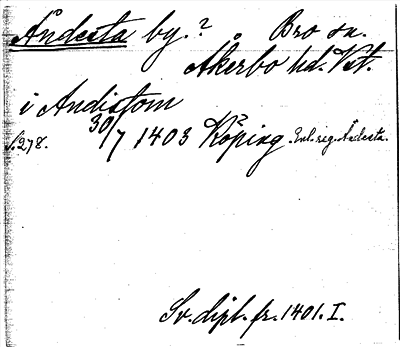 Åndesta by.? Bro sn.
Åkerbo hd. Vstm.
i Andistom
s. 278. 30/7 1403 Köping. Enl. reg. Åndesta.
Sv. dipl. fr. 1401. I.